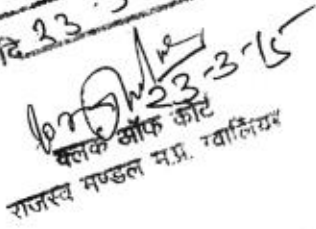 दि 23-3
23-3-15
क्लर्क ऑफ कोर्ट
राजस्व मण्डल म.प्र. ग्वालियर